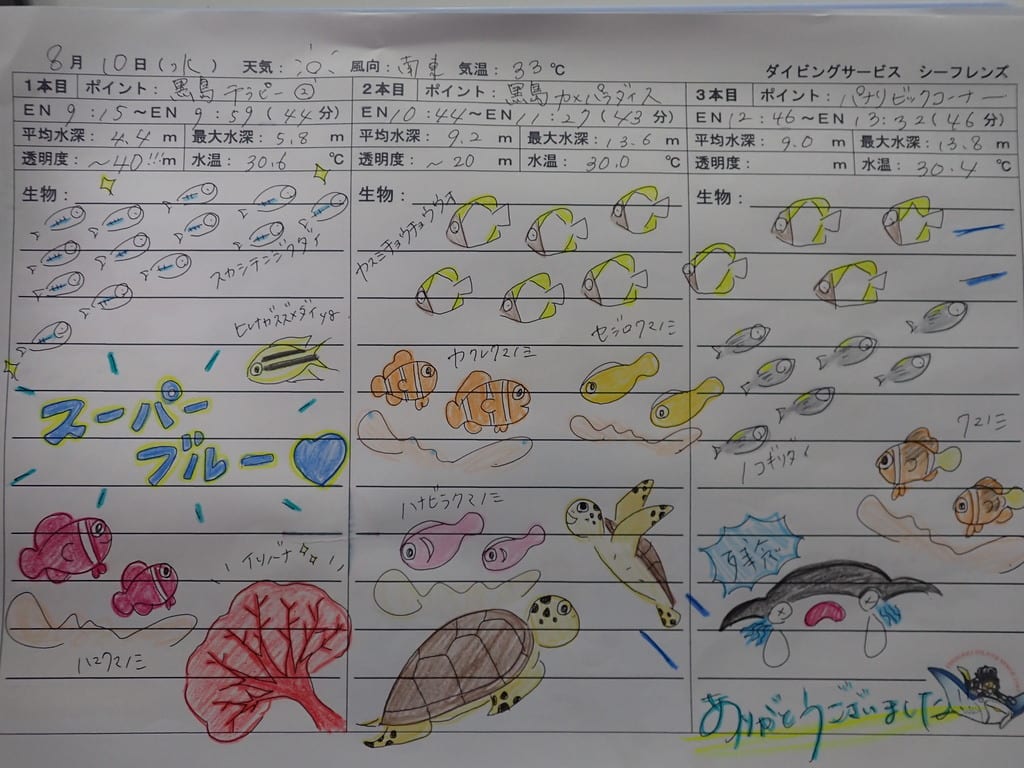 8月 10日(水) 天気: 風向: 南東 気温: 33℃
ダイビングサービス シーフレンズ
1本目 ポイント: 黒島 テラピー②
EN 9:15〜EN 9:59(44分)
平均水深: 4.4 m 最大水深: 5.8 m
透明度: 〜40!!! m 水温: 30.6 ℃
生物:
スカシテンジクダイ
ヒレナガスズメダイyg
スーパー
ブルー
イソバナ
ハマクマノミ
2本目 ポイント: 黒島 カメパラダイス
EN 10:44〜EN 11:27(43分)
平均水深: 9.2 m 最大水深: 13.6 m
透明度: 〜20 m 水温: 30.0 ℃
生物:
カスミチョウチョウウオ
セジロクマノミ
カクレクマノミ
ハナビラクマノミ
3本目 ポイント: パナリビックコーナー
EN 12:46〜EN 13:32(46分)
平均水深: 9.0 m 最大水深: 13.8 m
透明度: m 水温: 30.4 ℃
生物:
クマノミ
ノコギリダイ
残念
ありがとうございました